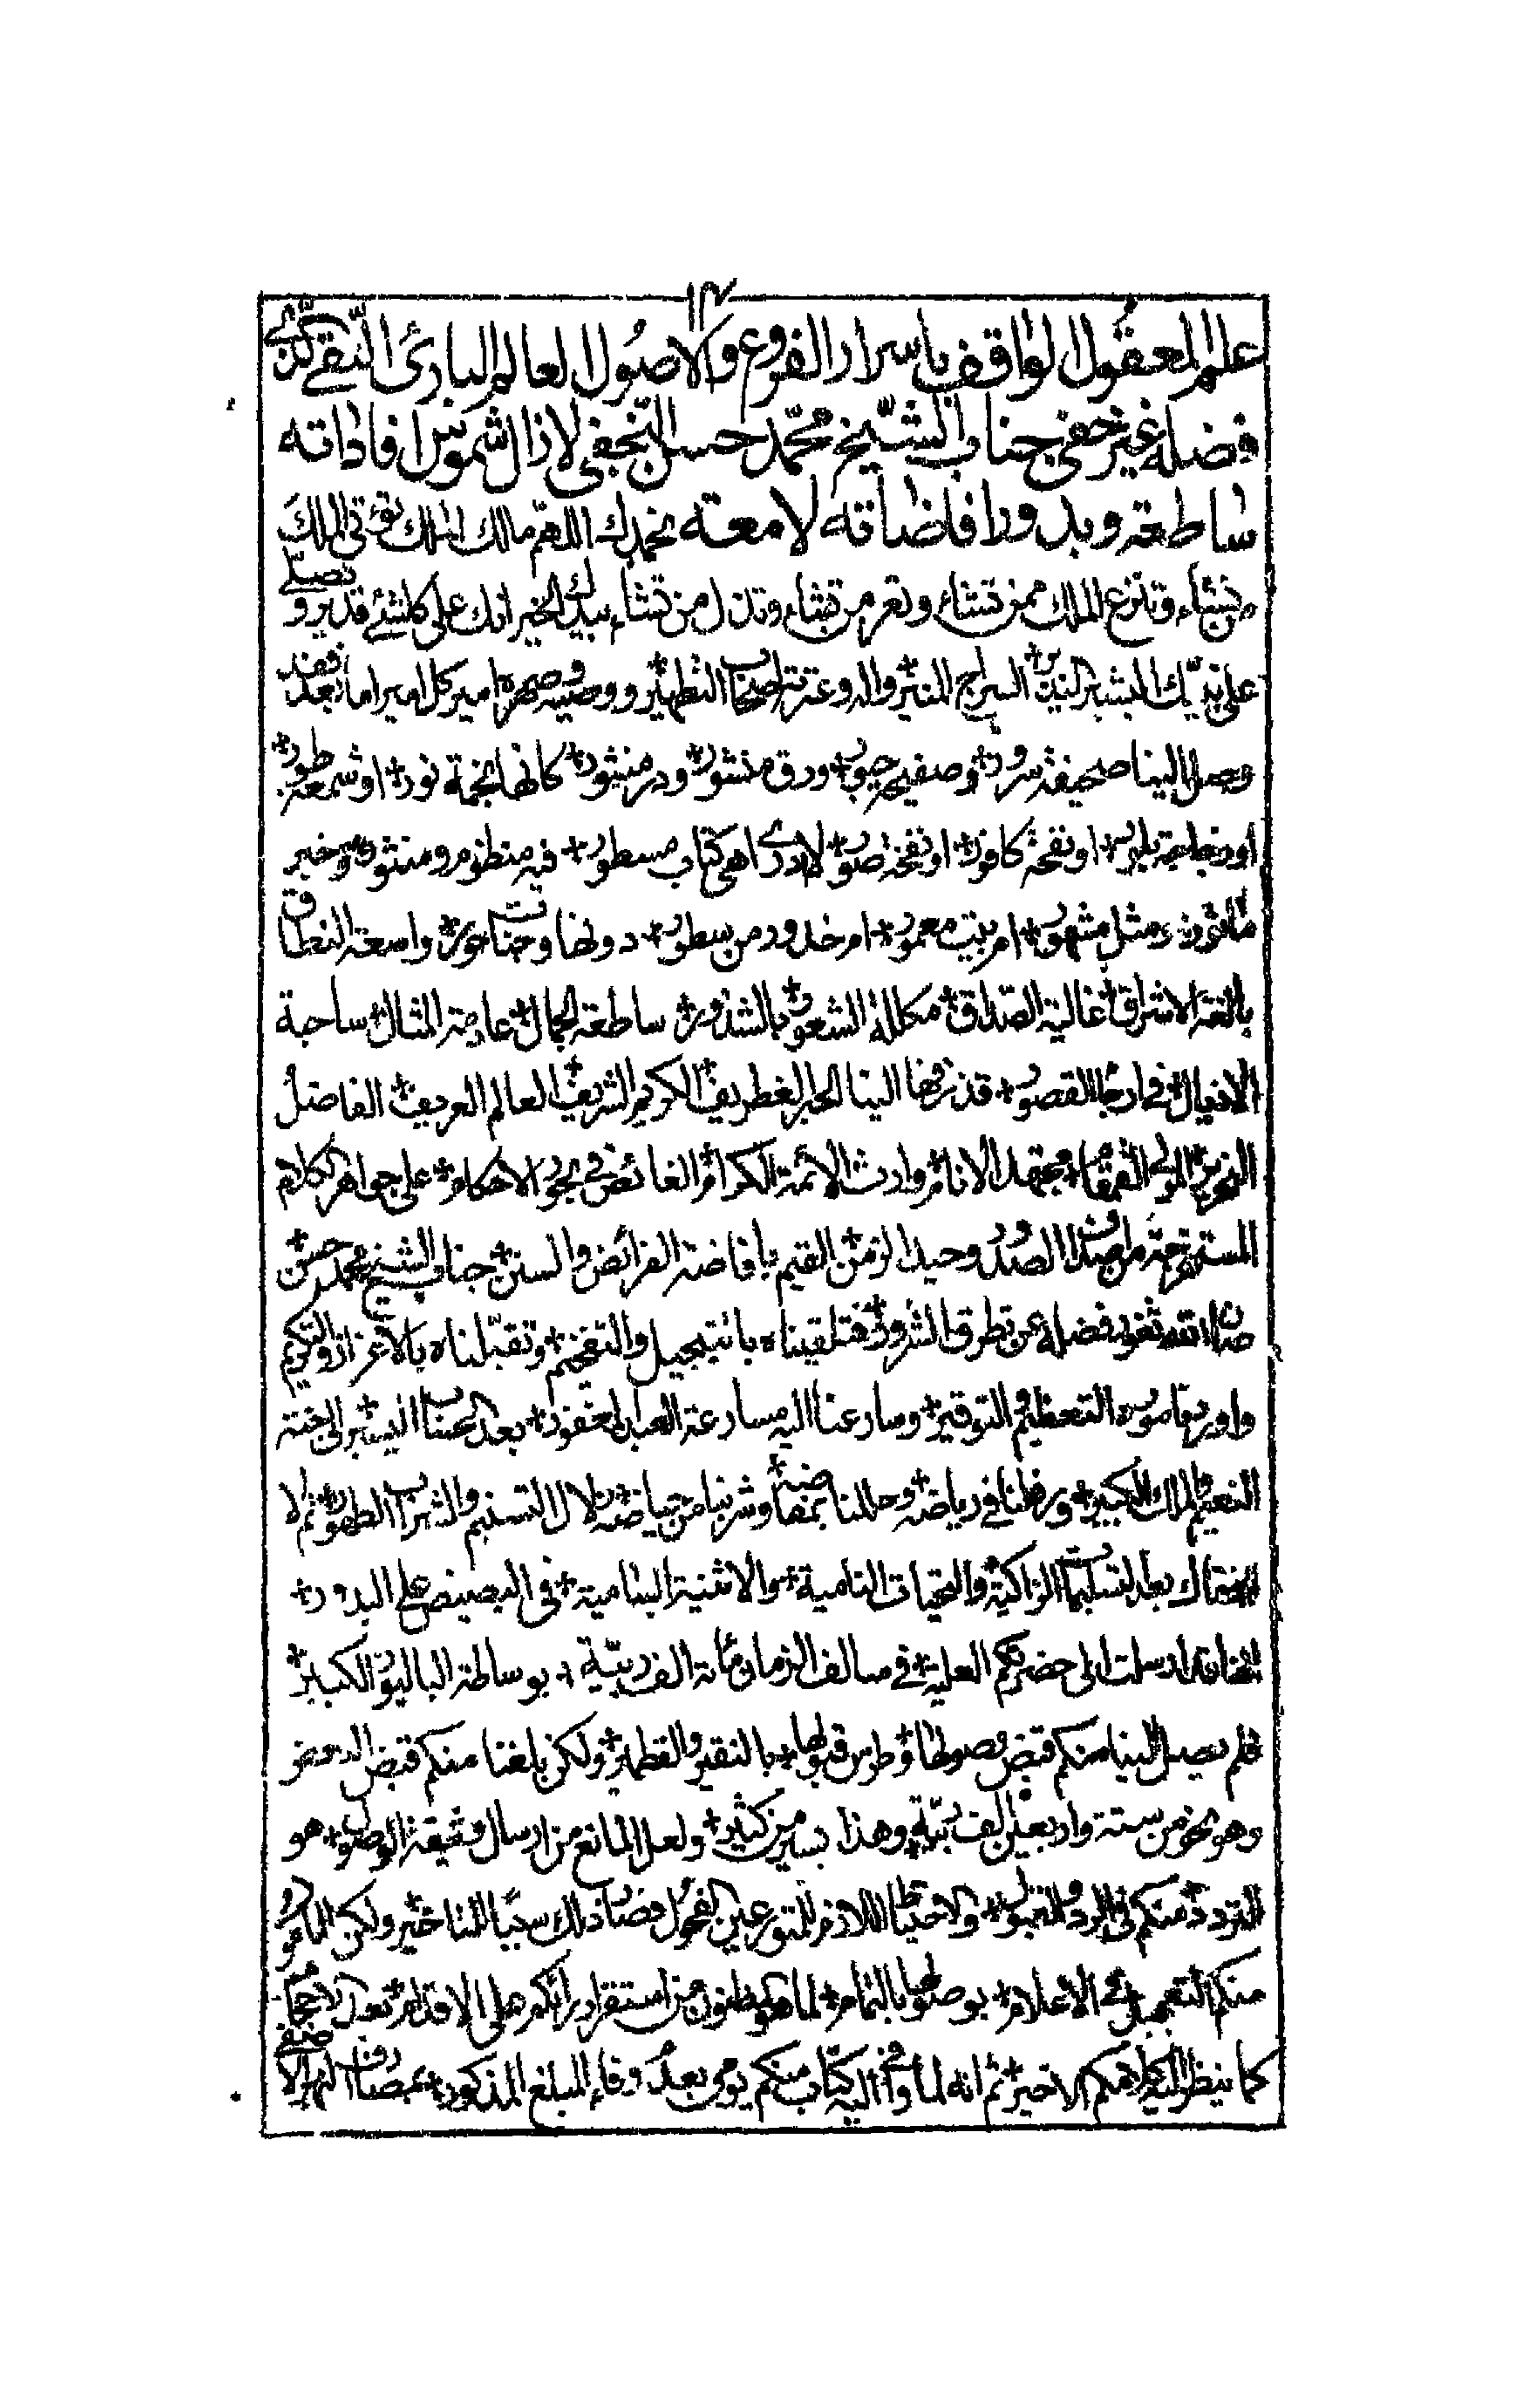 ١٢
علم المعقول الواقف باسرار الفروع والاصول العالم البارئ التقى الذى
فضله غير خفى جناب الشيخ محمد حسن النجفى لا زال شموس افاداته
ساطعة وبدور افاضاته لامعة نحمدك اللهم مالك الملك تؤتى الملك
من تشاء وتنزع الملك ممن تشاء وتعز من تشاء وتذل من تشاء بيدك الخير انك على كلشئ قدير ونصلى
على نبيك البشير النذير + السراج المنير + واله وعترته اصحاب التطهير + ووصيه وصهره امير كل امير اما بعد فقد
وصل الينا صحيفة سرور + وصفيحة حبور + ورق منشور + ودر منثور + كانها نجمة نور + او شمعة طور +
او نفحة كافور + او نفخة صور + لا ادرى اهى كتاب مسطور + فيه منظوم ومنثور + وخبر
ماثور + ومثل مشهور + ام بيت معمور + ام خدود من سطور + دونها وجنات حور + واسعة النطاق
بالغة الاشراق + غالية الصداق + مكللة الشعور + بالشذور + ساطعة الجمال + عادمة المثال + ساحبة
الاذيال + فى ارجاء القصور + قد زفها الينا الحبر الغطريف + الكريم الشريف + العالم العريف + الفاضل
النحرير + المولى القمقام + مجتهد الانام + وارث الائمة الكرام + الغائص فى بحور الاحكام + على جواهر الكلام
المستخرجة من اصداف الصدور وحيد الزمن + القيم بافاضة الفرائض والسنن + جناب الشيخ محمد حسن +
صان الله ثغور فضله عن تطرق الشرور + فتلقيناه بالتبجيل والتفخيم + وتقبلناه بالاعزاز والتكريم
والتعظيم والتوقير + وسارعنا اليه مسارعة العبد المغفور + بعد الحساب اليسير الى جنة
النعيم والملك الكبير + ورفلنا فى رياضه + وحللنا وشربنا من حياضه زلال التسنيم والشراب الطهور + ثم لا
بعد التسليمات الزاكية + والتحيات النامية + والاثنية السامية + فى التبصيص على البدور +
انها قد ارسلت الى حضرتكم العلية + فى سالف الزمان مائة الف ربية + بوساطة الباليوز الكبير +
فلم يصل الينا منكم قبض وصولها + وطرس قبولها + بالنقير والقطمير + ولكن بلغنا منكم قبض البعض
وهو نحو من ستة واربعين الف ربية + وهذا يسير من كثير + ولعل المانع من ارسال وثيقة الوصول + هو
التردد منكم فى الرد والقبول + والاحتياط اللازم للمتورعين الفحول فصار ذلك سببا للتاخير + ولكن المامول
منكم التعجيل فى الاعلام + بوصولها بالتمام + لما هو المظنون من استقرار رائكم على الاقدام + بعد الاحجام
كما ينظر اليه كلامكم الاخير + ثم انه لما كتاب منكم يومى بعد وفاء المبلغ المذكور + بمصارف النهر الاصفى